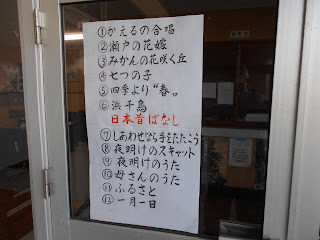 ①かえるの合唱
②瀬戸の花嫁
③みかんの花咲く丘
④七つの子
⑤四季より“春„
⑥浜千鳥
日本昔ばなし
⑦しあわせなら手をたたこう
⑧夜明けのスキャット
⑨夜明けのうた
⑩母さんのうた
⑪ふるさと
⑫一月一日